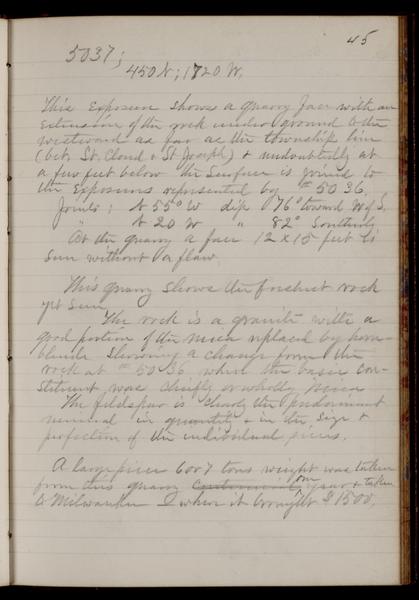 45
5037;
450 N; 1720 W.
This exposure shows a quarry face with an
extension of the rock under ground to the
westward as far as the township line
(bet. St. Cloud & St Joseph) & undoubtedly at
a few feet below the surface is joined to
the exposures represented by # 5036.
Joints; N 55° W dip 76° toward W of S.
" N 20 W " 82° Southerly
At the quarry a face 12 x 15 feet is
seen without a flaw.
This quarry shows the freshest rock
yet seen.
The rock is a granite with a
good portion of the mica replaced by horn-
blende showing a change from the
rock at # 5036 where the basic con-
stituent was chiefly or wholly mica
The feldspar is clearly the predominant
mineral in quantity & in the size &
perfection of the individual pieces.
A large piece 6 or 7 tons weight was taken
from this quarry one year & taken
to Milwaukee where it brought $1500.